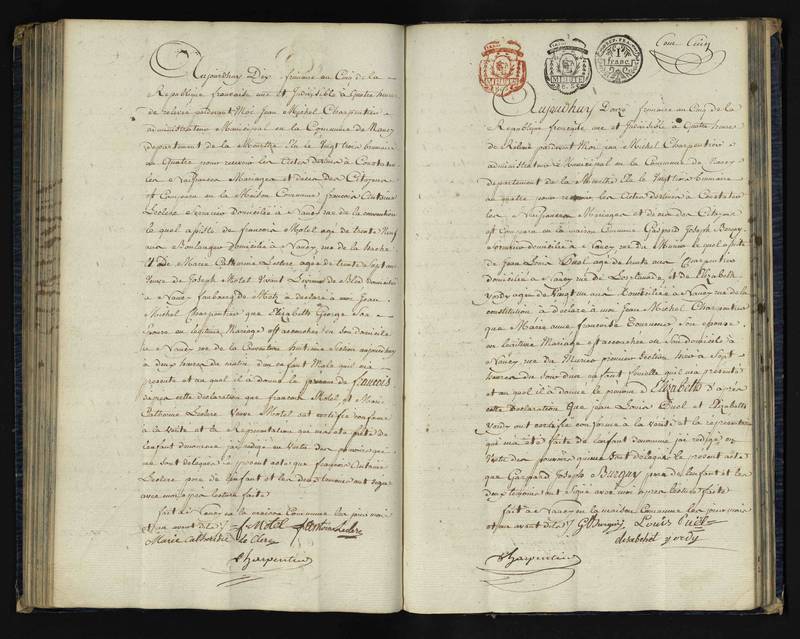 Aujourdhuy Dix frimaire an Cinq de la
Republique francaise une et Indivisible à Quatre heures
de relevée pardevant Moi Jean Michel Charpentier
administrateur Municipal en la Commune de Nancy
departement de la Meurthe Elu le Vingt trois brumaire
an Quatre pour recevoir les Actes destinés à Constater
les Naissances Mariages et deces des Citoyens
est Comparu en la Maison Commune francois Antoine
Leclere domicilié à Nancy rue de la convention
le quel assisté de francois Motel agé de trente Neuf
ans Boulanger domicilié a Nancy rue de la
Et De Marie Catherine Leclere agée de trente Sept ans
Veuve de Joseph Motel Vivant de Bled domiciliée
a Nancy faubourg de Metz à declaré à moi Jean
Michel Charpentier que Elizabeth George Son
Epouse en legitime Mariage est accouchée en Son domicile
à Nancy rue de la Convention huitieme Section aujourdhuy
à deux heures du matin d'un enfant Male quil m'a
presenté et au quel il à donné le prenom de francois
dapres cette declaration que francois Motel et Marie
Catherine Leclere Veuve Motel ont certifié conforme
à la Verité et la Representation qui m'a été faite de
l'enfant denommé jai redigé en Vertu des pouvoirs qui
me sont delegués le present acte que francois Antoine
Leclere pere de l'enfant et les deux temoins ont signé
avec moi apres lecture faite
fait à Nancy en la maison Commune les jour mois
et an avant dits f. Motel fs antoine Leclere
Marie Catherine le Clere
Charpentier
REP. FRA.
1 franc
Aujourdhuy Douze frimaire an Cinq de la
Republique francaise une et Indivisible à Quatre heures
de Relevé pardevant Moi jean Michel Charpentier
administrateur Municipal en la Commune de Nancy
departement de la Meurthe Elu le Vingt trois brumaire
an quatre pour recevoir les Actes destinés à Constater
les Naissances Mariages et deces des Citoyens
est Comparu en la maison Commune Gaspard Joseph
domicilié à Nancy rue du le quel assisté
de Jean Louis agé de trente ans Charpentier
domicilié à Nancy rue de et de Elizabeth
Vordy agée de Vingt un ans domiciliée à Nancy rue de la
constitution à declaré à moi Jean Michel Charpentier
que Marie anne francoise Son epouse
en legitime Mariage est accouchée en Son domicile à
Nancy rue du premier Section hier à Sept
heures du Soir d'un enfant femelle quil m'a presenté
et au quel il à donné le prenom d'Elizabeth d'apres
cette declaration Que jean Louis et Elizabeth
Vordy ont certifié conforme à la Verité et la representation
qui m'a été faite de l'enfant denommé jai redigé en
Vertu des pouvoirs qui me sont delegués le present acte
que Gaspard Joseph pere de l'enfant et les
deux temoins ont signé avec moi apres lecture faite
fait à Nancy en la maison Commune les jour mois
et an avant dits Louis
elisabethet Vordy
Charpentier